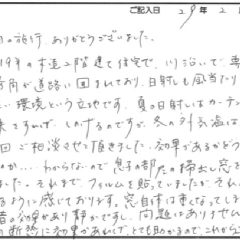 ご記入日 29年2
の施行、ありがとうございました。
19年の木造2階建て住宅で、川沿いで車
方角が道路に回まれており、日射しも風当たり
い環境という立地です。夏の日射しはカーテン
来ますれば、しのげるのですが、冬の外気温は
回ご相談させて頂きました。効果があるかどう
……わからないので息子の部屋の掃出し窓を
ました。それまでフィルムを貼っていましたがそれ
るように感じております。窓自体は重たくなってしま
音の効果があり静かですし、問題はありません
の断熱に効果があれば、とても助かるので、これから